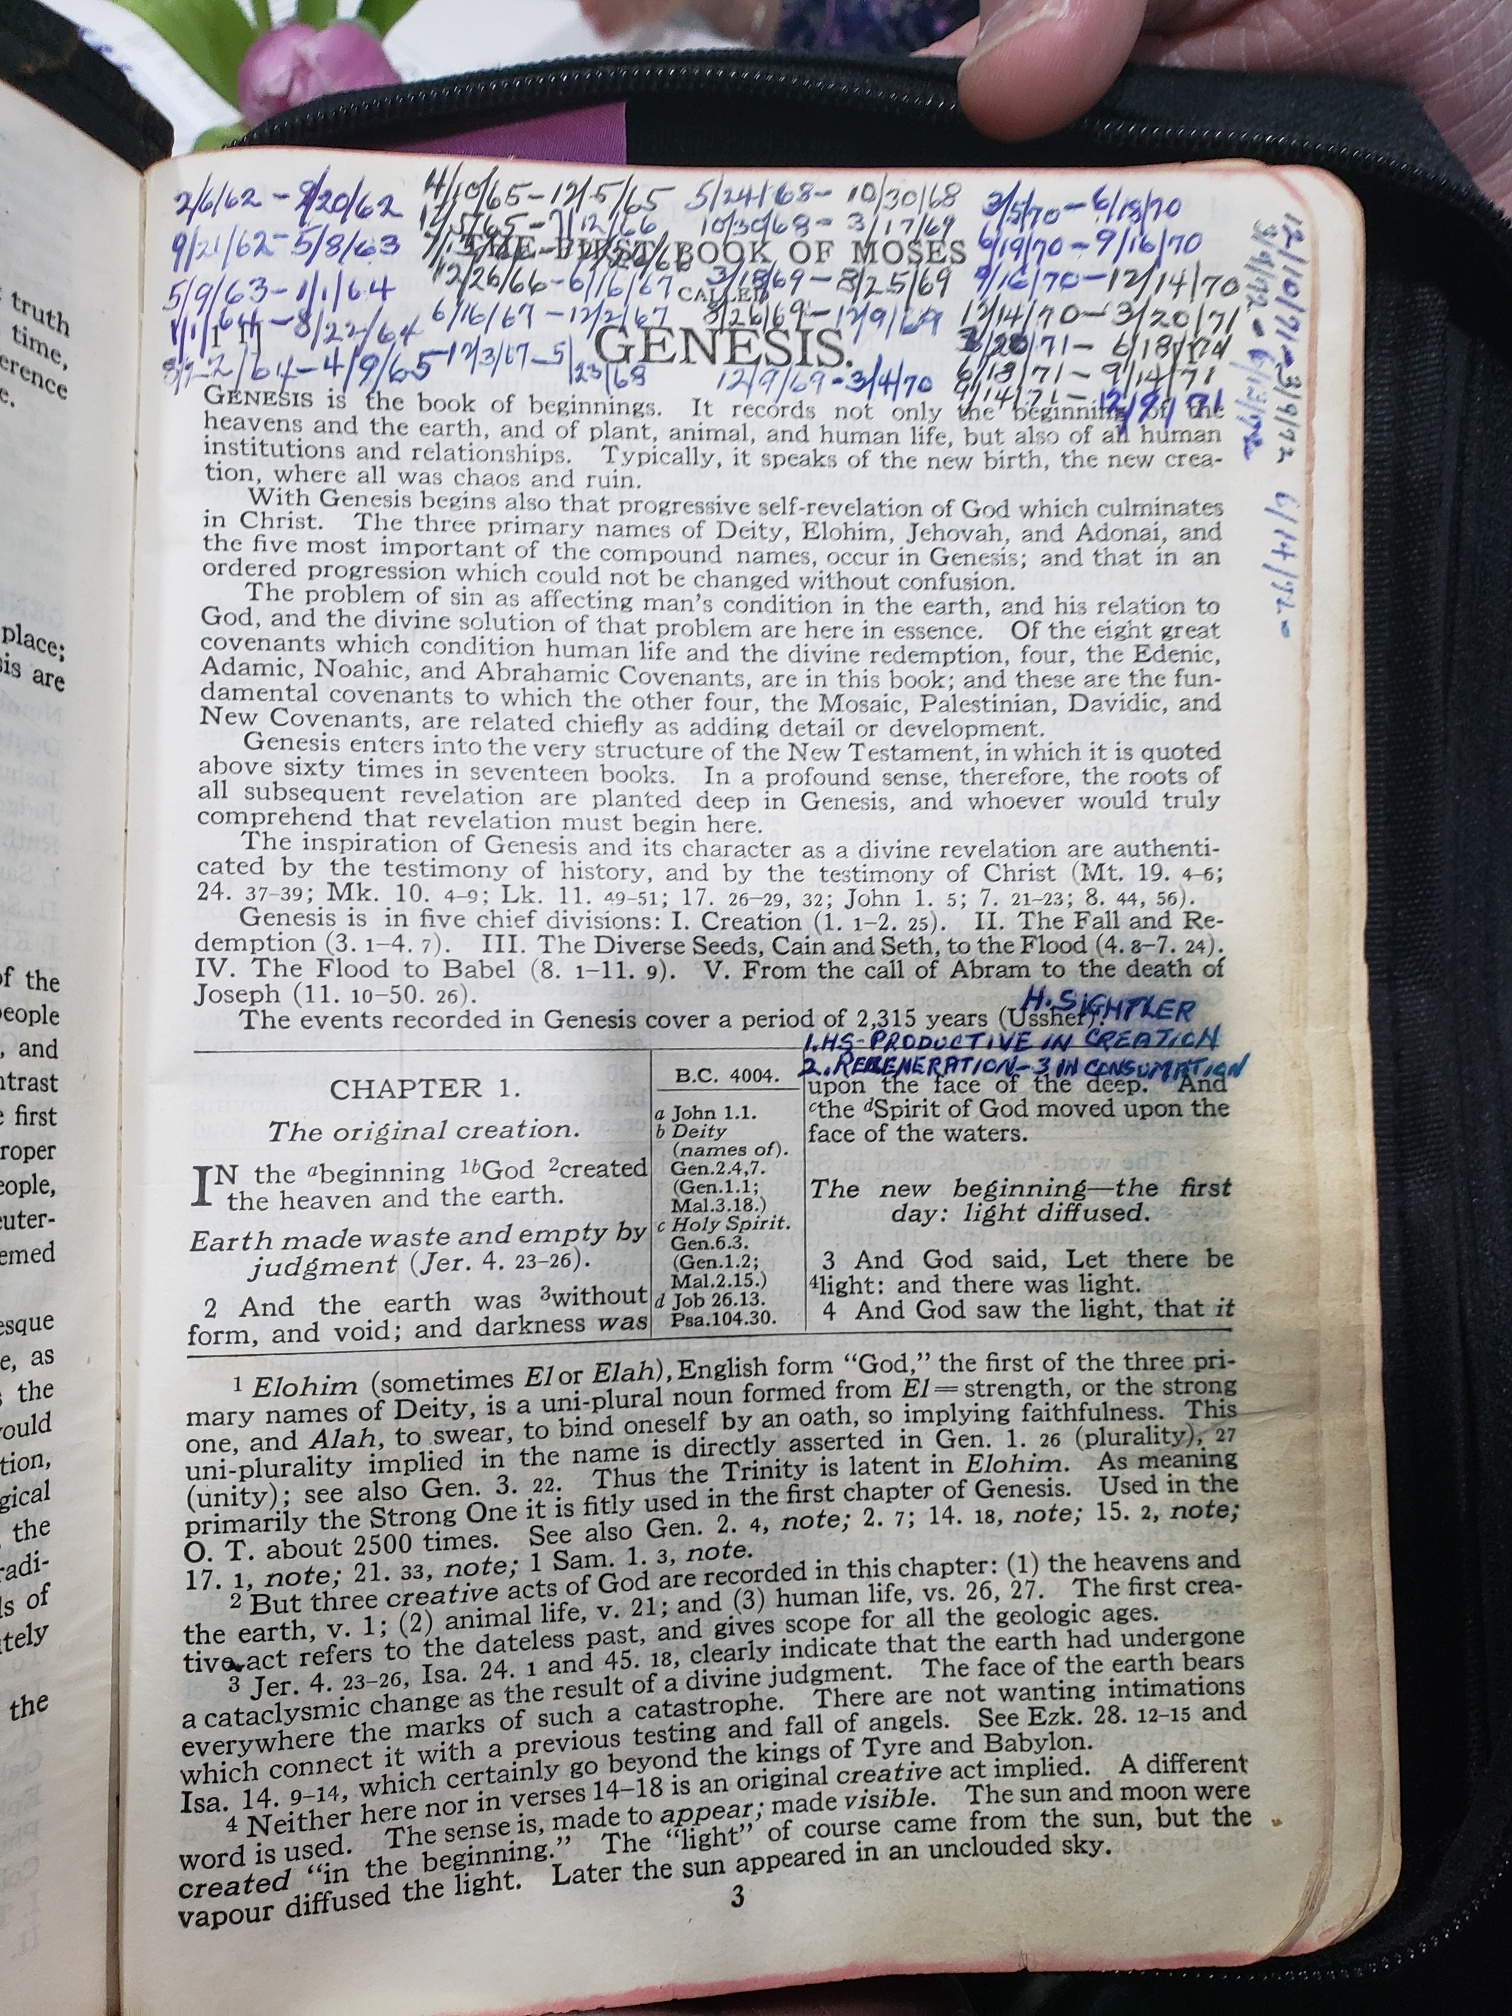 2/6/62 - 9/20/62
9/21/62 - 5/8/63
5/9/63 - 1/1/64
1/1/64 - 8/22/64
4/9/65
4/10/65 - 12/5/65
12/5/65 - 7/12/66
12/26/66 - 6/16/67
6/16/67 - 12/2/67
12/3/67 - 5/23/68
5/24/68 - 10/30/68
10/30/68 - 3/17/69
3/18/69 - 8/25/69
8/26/69 - 12/9/69
12/9/69 - 3/4/70
3/5/70 - 6/18/70
6/19/70 - 9/16/70
9/16/70 - 12/14/70
12/14/70 - 3/20/71
6/18/71 - 9/14/71
9/14/71 - 12/9/71
12/10/71 - 3/9/72
3/9/72 - 6/13/72
6/14/72 -
THE FIRST BOOK OF MOSES
CALLED
GENESIS.
GENESIS is the book of beginnings. It records not only the beginning of the
heavens and the earth, and of plant, animal, and human life, but also of all human
institutions and relationships. Typically, it speaks of the new birth, the new crea-
tion, where all was chaos and ruin.
With Genesis begins also that progressive self-revelation of God which culminates
in Christ. The three primary names of Deity, Elohim, Jehovah, and Adonai, and
the five most important of the compound names, occur in Genesis; and that in an
ordered progression which could not be changed without confusion.
The problem of sin as affecting man's condition in the earth, and his relation to
God, and the divine solution of that problem are here in essence. Of the eight great
covenants which condition human life and the divine redemption, four, the Edenic,
Adamic, Noahic, and Abrahamic Covenants, are in this book; and these are the fun-
damental covenants to which the other four, the Mosaic, Palestinian, Davidic, and
New Covenants, are related chiefly as adding detail or development.
Genesis enters into the very structure of the New Testament, in which it is quoted
above sixty times in seventeen books. In a profound sense, therefore, the roots of
all subsequent revelation are planted deep in Genesis, and whoever would truly
comprehend that revelation must begin here.
The inspiration of Genesis and its character as a divine revelation are authenti-
cated by the testimony of history, and by the testimony of Christ (Mt. 19. 4-6;
24. 37-39; Mk. 10. 4-9; Lk. 11. 49-51; 17. 26-29, 32; John 1. 5; 7. 21-23; 8. 44, 56).
Genesis is in five chief divisions: I. Creation (1. 1-2. 25). II. The Fall and Re-
demption (3. 1-4. 7). III. The Diverse Seeds, Cain and Seth, to the Flood (4. 8-7. 24).
IV. The Flood to Babel (8. 1-11. 9). V. From the call of Abram to the death of
Joseph (11. 10-50. 26).
The events recorded in Genesis cover a period of 2,315 years (Ussher).
H. SIGHTLER
1. HS - PRODUCTIVE IN CREATION
2. REGENERATION - 3 IN CONSUMATION
CHAPTER 1.
The original creation.
IN the ᵃbeginning ¹ᵇGod ²created
the heaven and the earth.
Earth made waste and empty by
judgment (Jer. 4. 23-26).
2 And the earth was ³without
form, and void; and darkness was
B.C. 4004.
a John 1.1.
b Deity
(names of).
Gen.2.4,7.
(Gen.1.1;
Mal.3.18.)
c Holy Spirit.
Gen.6.3.
(Gen.1.2;
Mal.2.15.)
d Job 26.13.
Psa.104.30.
upon the face of the deep. And
ᶜthe ᵈSpirit of God moved upon the
face of the waters.
The new beginning—the first
day: light diffused.
3 And God said, Let there be
⁴light: and there was light.
4 And God saw the light, that it
1 Elohim (sometimes El or Elah), English form "God," the first of the three pri-
mary names of Deity, is a uni-plural noun formed from El=strength, or the strong
one, and Alah, to swear, to bind oneself by an oath, so implying faithfulness. This
uni-plurality implied in the name is directly asserted in Gen. 1. 26 (plurality), 27
(unity); see also Gen. 3. 22. Thus the Trinity is latent in Elohim. As meaning
primarily the Strong One it is fitly used in the first chapter of Genesis. Used in the
O. T. about 2500 times. See also Gen. 2. 4, note; 2. 7; 14. 18, note; 15. 2, note;
17. 1, note; 21. 33, note; 1 Sam. 1. 3, note.
2 But three creative acts of God are recorded in this chapter: (1) the heavens and
the earth, v. 1; (2) animal life, v. 21; and (3) human life, vs. 26, 27. The first crea-
tive act refers to the dateless past, and gives scope for all the geologic ages.
3 Jer. 4. 23-26, Isa. 24. 1 and 45. 18, clearly indicate that the earth had undergone
a cataclysmic change as the result of a divine judgment. The face of the earth bears
everywhere the marks of such a catastrophe. There are not wanting intimations
which connect it with a previous testing and fall of angels. See Ezk. 28. 12-15 and
Isa. 14. 9-14, which certainly go beyond the kings of Tyre and Babylon.
4 Neither here nor in verses 14-18 is an original creative act implied. A different
word is used. The sense is, made to appear; made visible. The sun and moon were
created "in the beginning." The "light" of course came from the sun, but the
vapour diffused the light. Later the sun appeared in an unclouded sky.
3